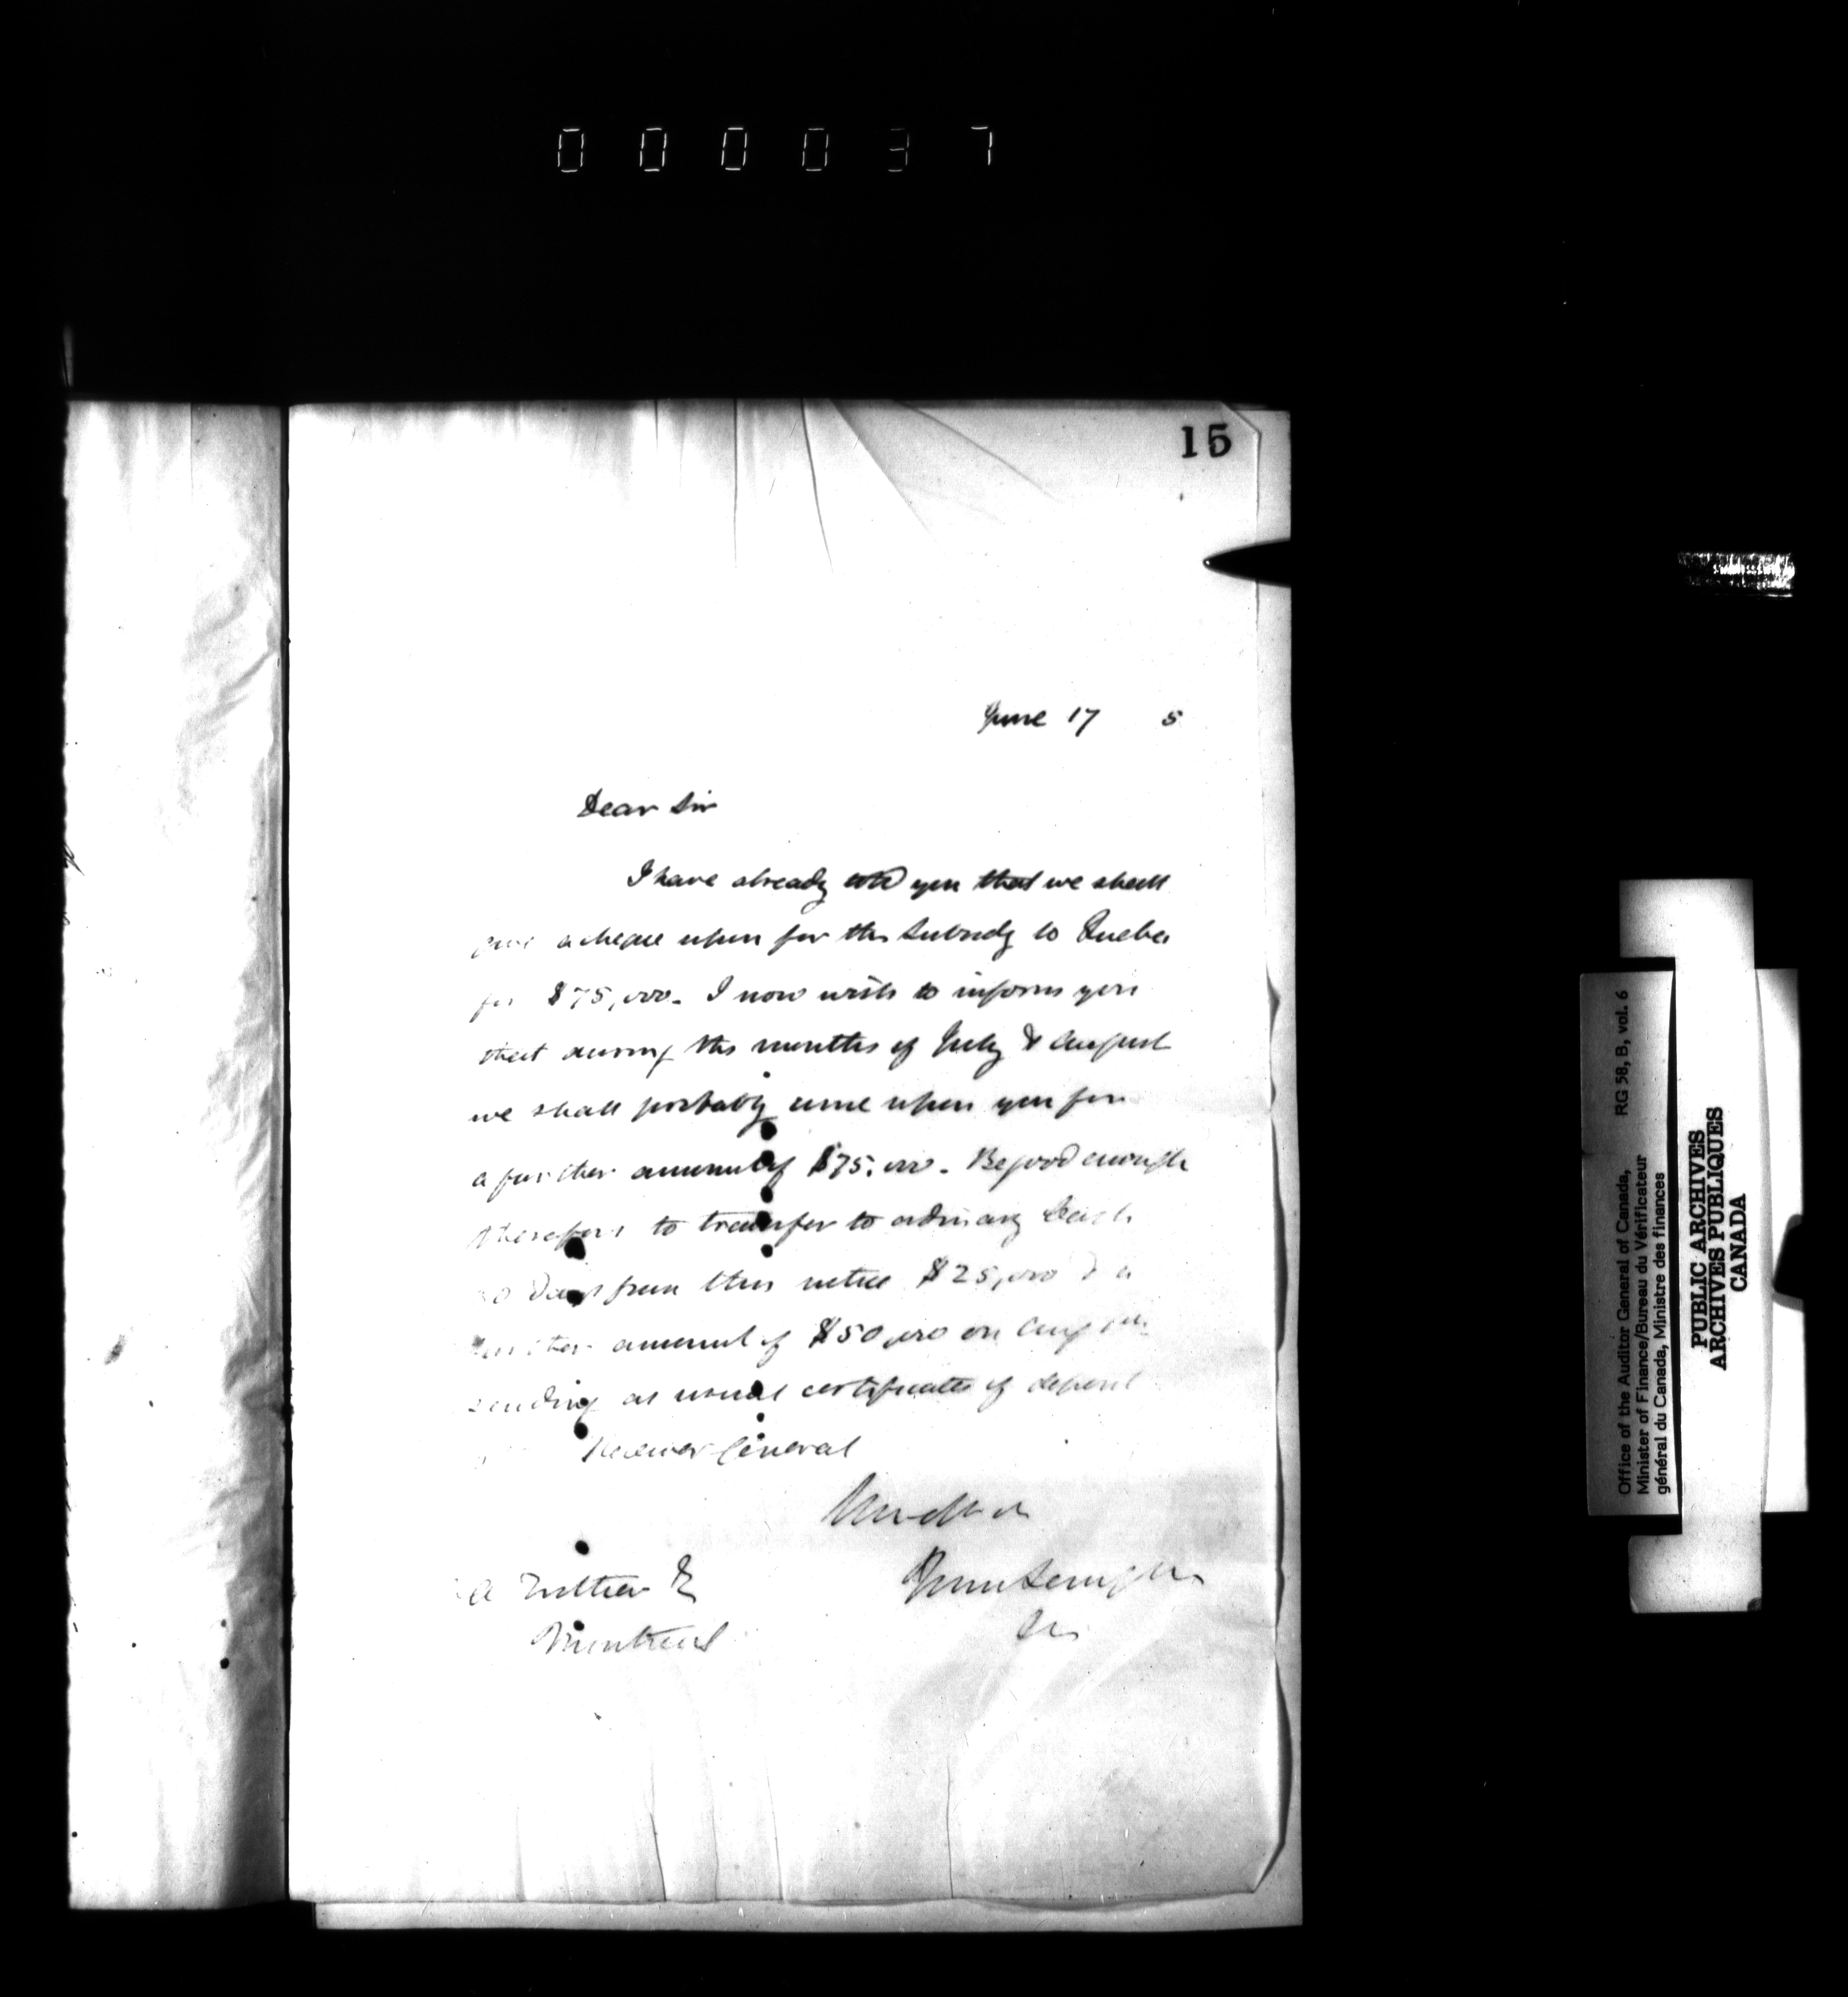 000037
15
June 17 5
Dear Sir
I have already told you that we shall
give a cheque upon for the Subsidy to Quebec
for $75,000. I now wish to inform you
that during the months of July & August
we shall probably come upon you for
a further amount of $75,000. Be good enough
therefore to transfer to ordinary
days from this notice $25,000 & a
further amount of $50,000 on Aug
sending as usual certificates of deposit
Receiver General
Montreal
RG 58, B, vol. 6
Office of the Auditor General of Canada,
Minister of Finance/Bureau du Vérificateur
général du Canada, Ministre des finances
PUBLIC ARCHIVES
ARCHIVES PUBLIQUES
CANADA